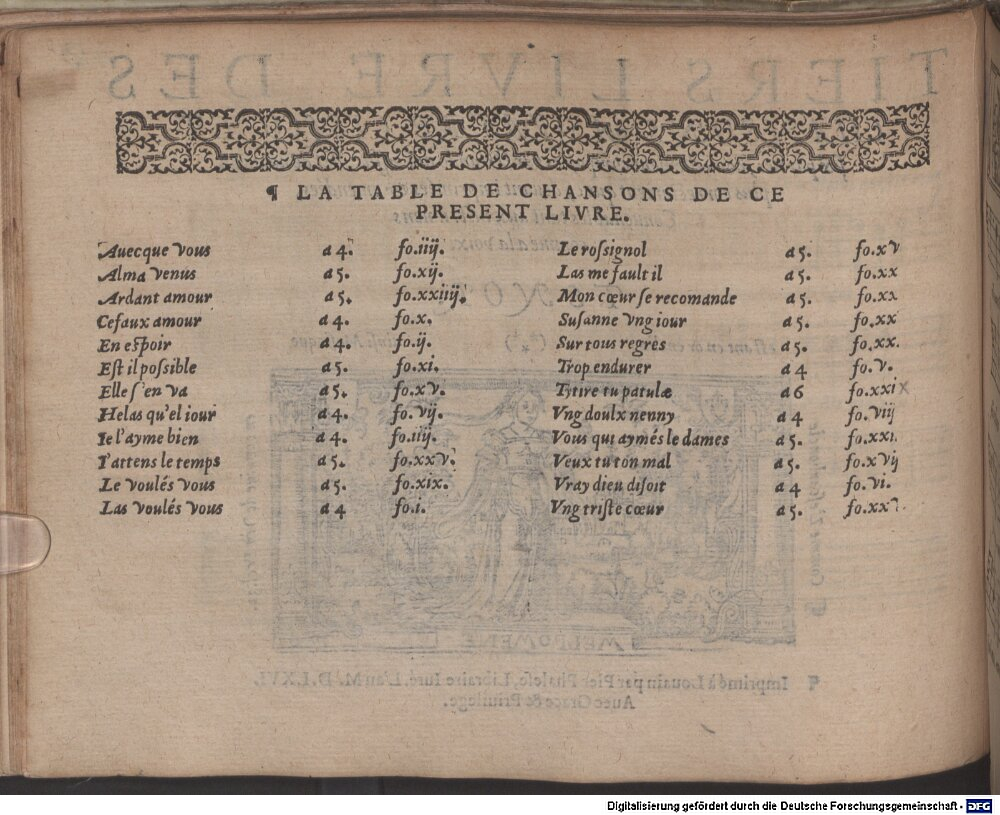 ¶ LA TABLE DE CHANSONS DE CE
PRESENT LIVRE.
Auecque vous a 4. fo.iiij.
Alma venus a 5. fo.xij.
Ardant amour a 5. fo.xxiiij.
Ce faux amour a 4. fo.x.
En espoir a 4. fo.ij.
Est il possible a 5. fo.xi.
Elle s'en va a 5. fo.xv.
Helas qu'el iour a 4. fo.vij.
Ie l'ayme bien a 4. fo.iiij.
I'attens le temps a 5. fo.xxv.
Le voulés vous a 5. fo.xix.
Las voulés vous a 4 fo.i.
Le rossignol a 5. fo.xv
Las me fault il a 5. fo.xx
Mon cœur se recomande a 5. fo.xx
Susanne vng iour a 5. fo.xx
Sur tous regres a 5. fo.xx.
Trop endurer a 4 fo.v.
Tytire tu patulæ a 6 fo.xxi
Vng doulx nenny a 4 fo.viij
Vous qui aymés le dames a 5. fo.xxi.
Veux tu ton mal a 5. fo.xvij
Vray dieu disoit a 4 fo.vi.
Vng triste cœur a 5. fo.xxv
TIERS LIVRE DES
MELPOMENE
¶ Imprimé à Louain par Pier Phalese, Libraire Iuré. L'an M. D. LXVI.
Auec Grace & Priuilege.
Digitalisierung gefördert durch die Deutsche Forschungsgemeinschaft - DFG